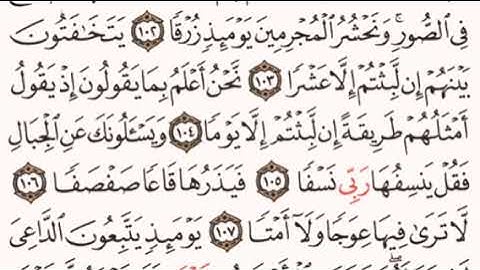 فِى ٱلصُّورِ ۚ وَنَحْشُرُ ٱلْمُجْرِمِينَ يَوْمَئِذٍ زُرْقًا ١٠٢ يَتَخَـٰفَتُونَ
بَيْنَهُمْ إِن لَّبِثْتُمْ إِلَّا عَشْرًا ١٠٣ نَّحْنُ أَعْلَمُ بِمَا يَقُولُونَ إِذْ يَقُولُ
أَمْثَلُهُمْ طَرِيقَةً إِن لَّبِثْتُمْ إِلَّا يَوْمًا ١٠٤ وَيَسْـَٔلُونَكَ عَنِ ٱلْجِبَالِ
فَقُلْ يَنسِفُهَا رَبِّى نَسْفًا ١٠٥ فَيَذَرُهَا قَاعًا صَفْصَفًا ١٠٦
لَّا تَرَىٰ فِيهَا عِوَجًا وَلَآ أَمْتًا ١٠٧ يَوْمَئِذٍ يَتَّبِعُونَ ٱلدَّاعِىَ